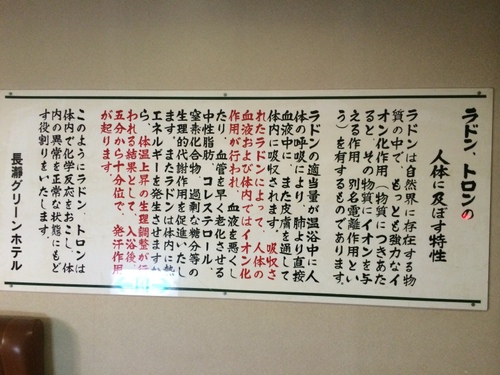 ラドン、トロンの
人体に及ぼす特性
ラドンは自然界に存在する物
質の中で、もっとも強力なイ
オン化作用（物質につきあた
ると、その物質にイオンを与
える作用、別名電離作用とい
う）を有するものであります。
ラドンの適当量が温浴中に人
体の呼吸により、肺より直接
血液中に、また皮膚を通して
体内に吸収されます。吸収さ
れたラドンによって、人体の
血液および体内ではイオン化
作用が行われ、血液を悪くし
たり、血管を早く老化させる
中性脂肪、コレステロール、
窒素化合物、過剰な糖分等の
生理的代謝作用を促進いたし
ます。またラドンは体内に熱
エネルギーを発生させますか
ら、体温上昇の生理調整が行
われる結果として、入浴後、
五分から十分位で、発汗作用
が起ります。
このようにラドン、トロンは
体内で化学反応をおこし、体
内の異常を正常な状態にもど
す役割りをいたします。
長瀞グリーンホテル